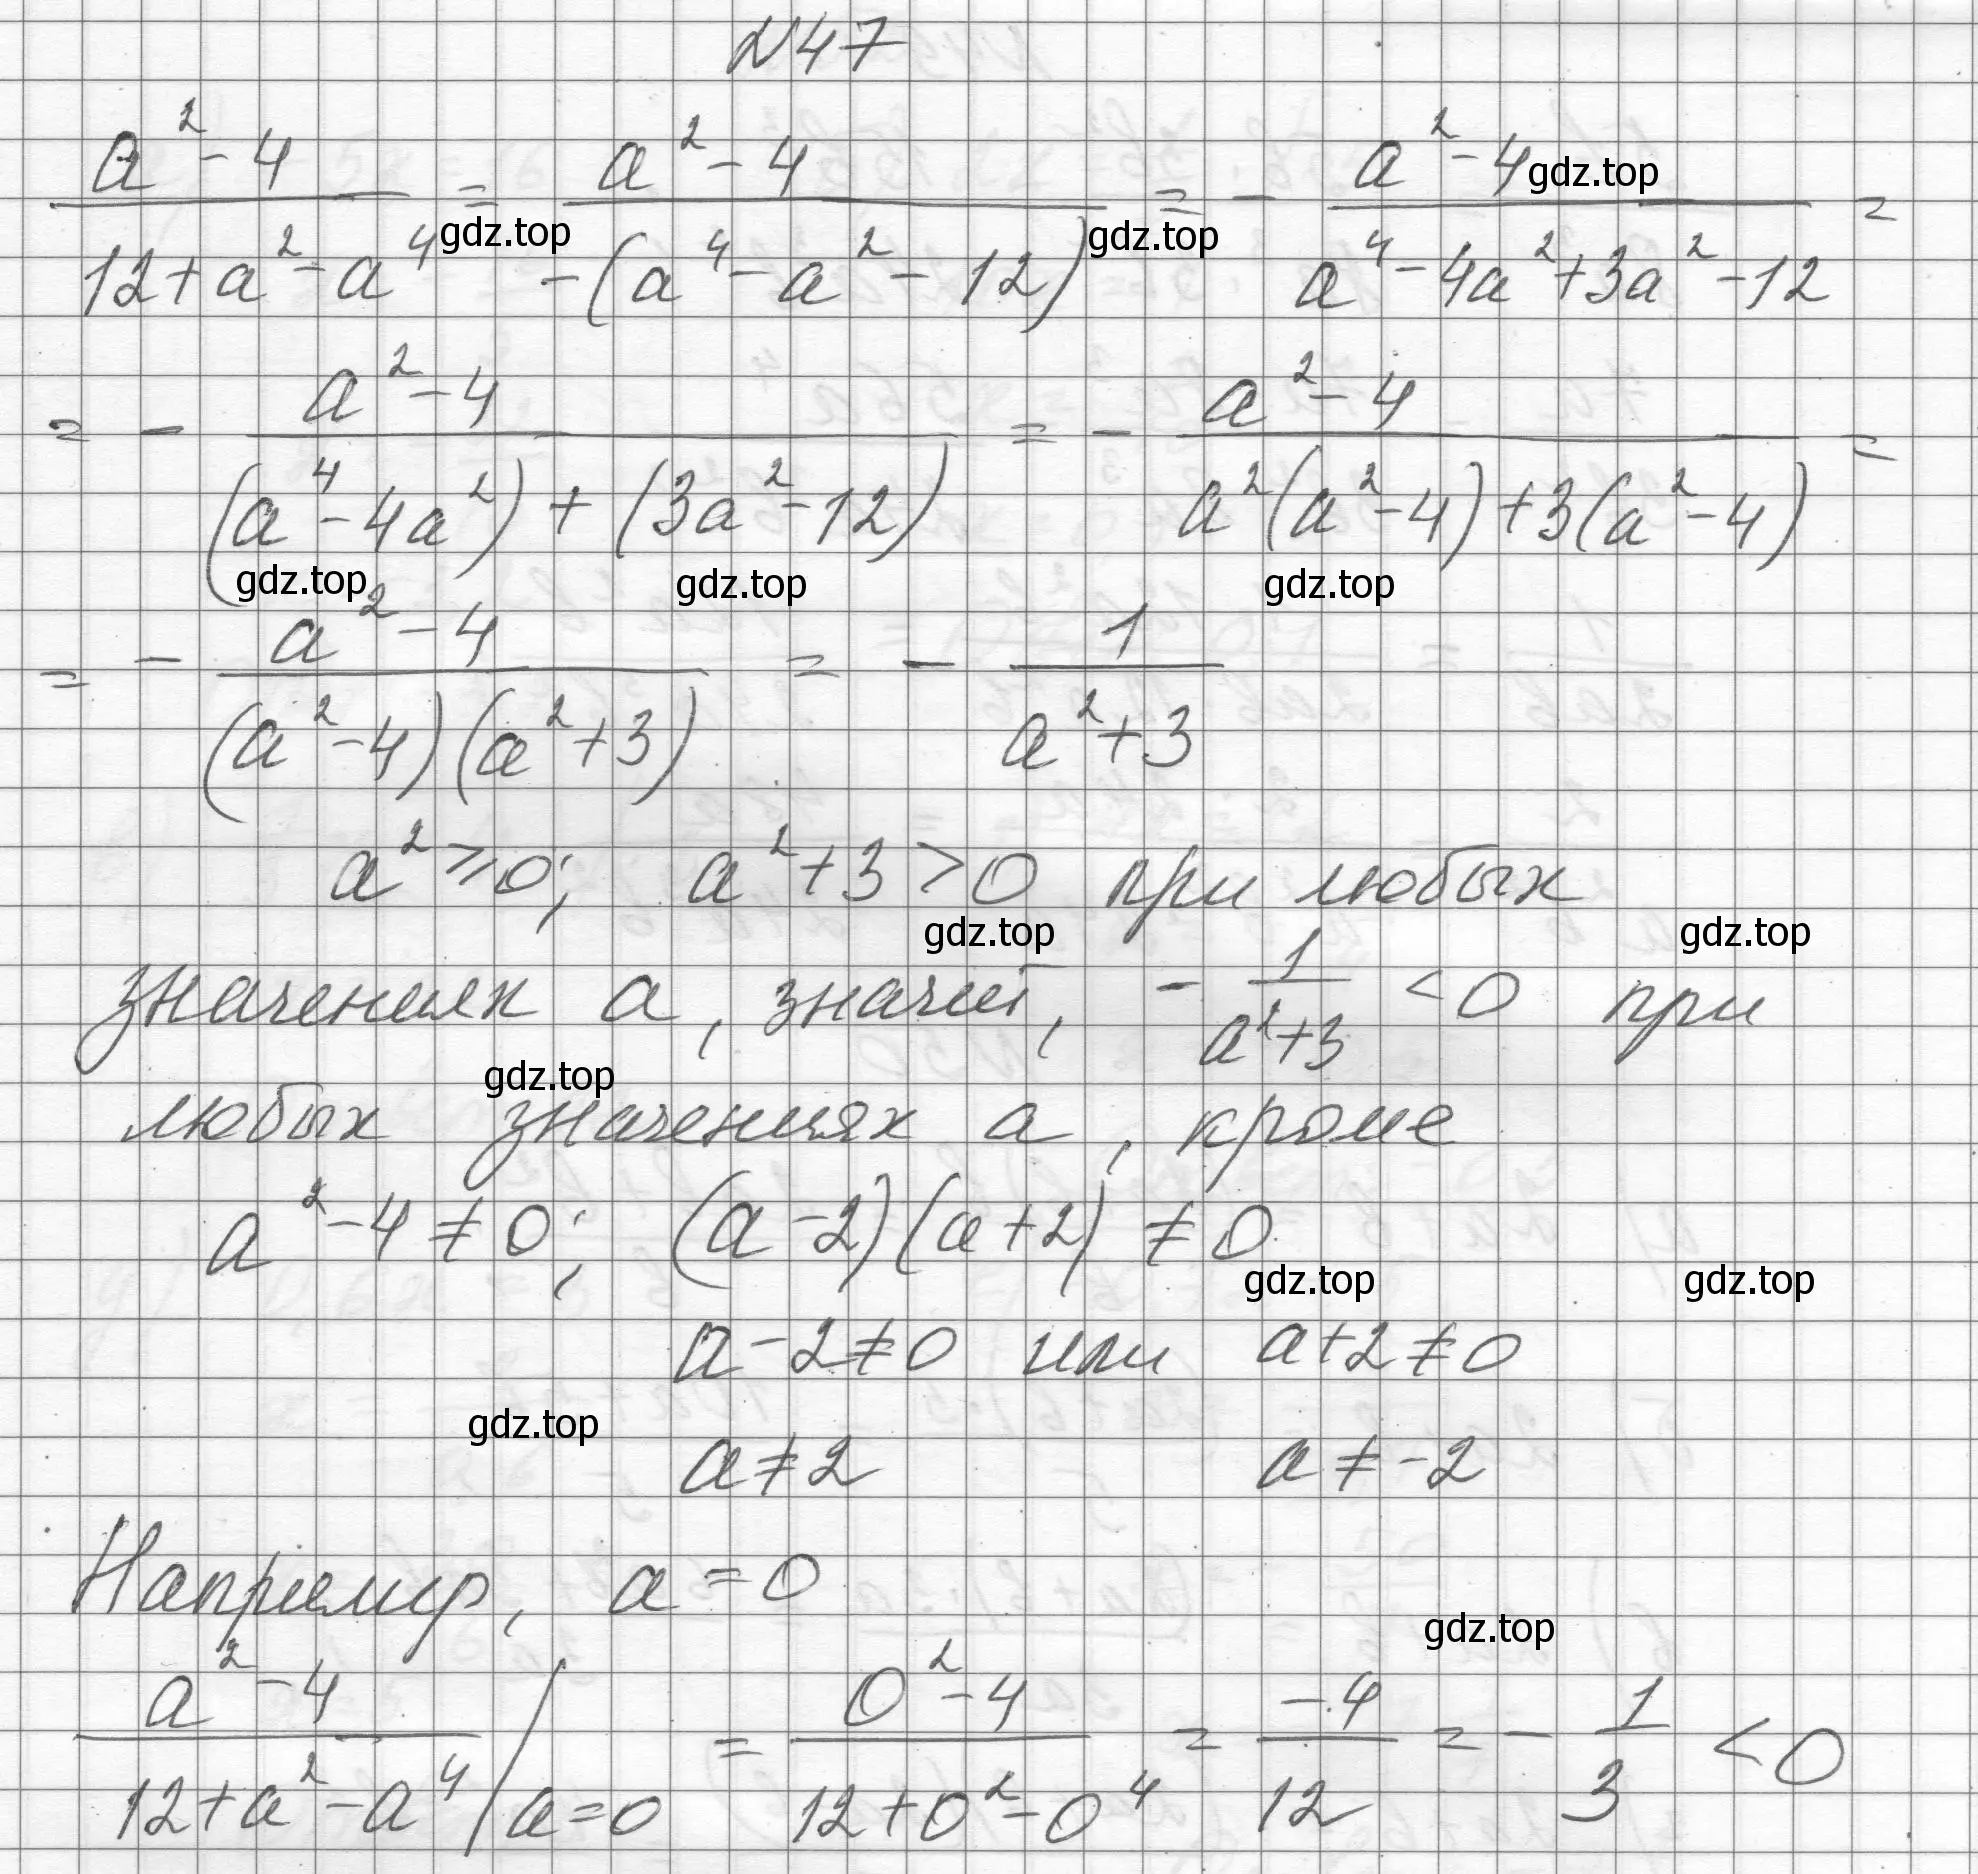 N47
a² - 4 / 12 + a² - a⁴ = a² - 4 / -(a⁴ - a² - 12) = - a² - 4 / a⁴ - 4a² + 3a² - 12 =
= - a² - 4 / (a⁴ - 4a²) + (3a² - 12) = - a² - 4 / a²(a² - 4) + 3(a² - 4) =
= - a² - 4 / (a² - 4)(a² + 3) = - 1 / a² + 3
a² ⩾ 0; a² + 3 > 0 при любых
значениях a, значит, - 1 / a² + 3 < 0 при
любых значениях a, кроме
a² - 4 ≠ 0; (a - 2)(a + 2) ≠ 0
a - 2 ≠ 0 или a + 2 ≠ 0
a ≠ 2 a ≠ -2
Например, a = 0
a² - 4 / 12 + a² - a⁴ / a = 0 = 0² - 4 / 12 + 0² - 0⁴ = -4 / 12 = - 1 / 3 < 0
gdz.top
gdz.top
gdz.top
gdz.top
gdz.top
gdz.top
gdz.top
gdz.top
gdz.top
gdz.top
gdz.top
gdz.top
gdz.top